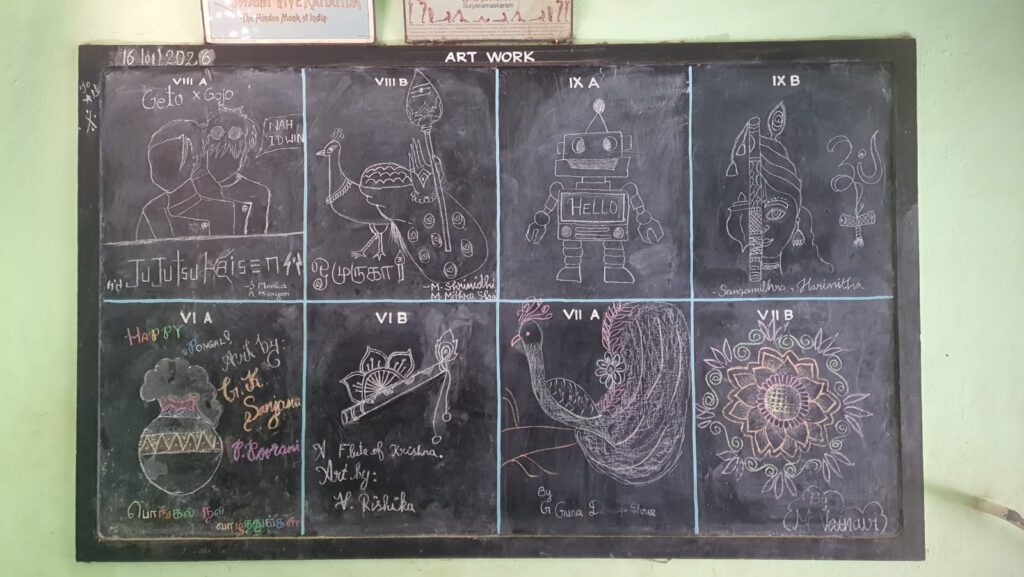 SWAMI VIVEKANANDA
The Hindoo Monk of India
Suryanamaskaram
16/01/2026
ART WORK
VIII A
Geto x Gojo
NAH
I'D WIN
JuJutsu Kaisen
VIII B
ஓ முருகா
-M. Shrinidhi
M. Mithra Shri
IX A
HELLO
IX B
Sangamithra, Harinitha
VI A
HAPPY
PONGAL
Art by:
G.K.
Sanjana
பொங்கல் நல்
வாழ்த்துக்கள்
VI B
A Flute of Krishna.
Art by:
V. Rishika
VII A
By
G Guna
Shree
VII B
By